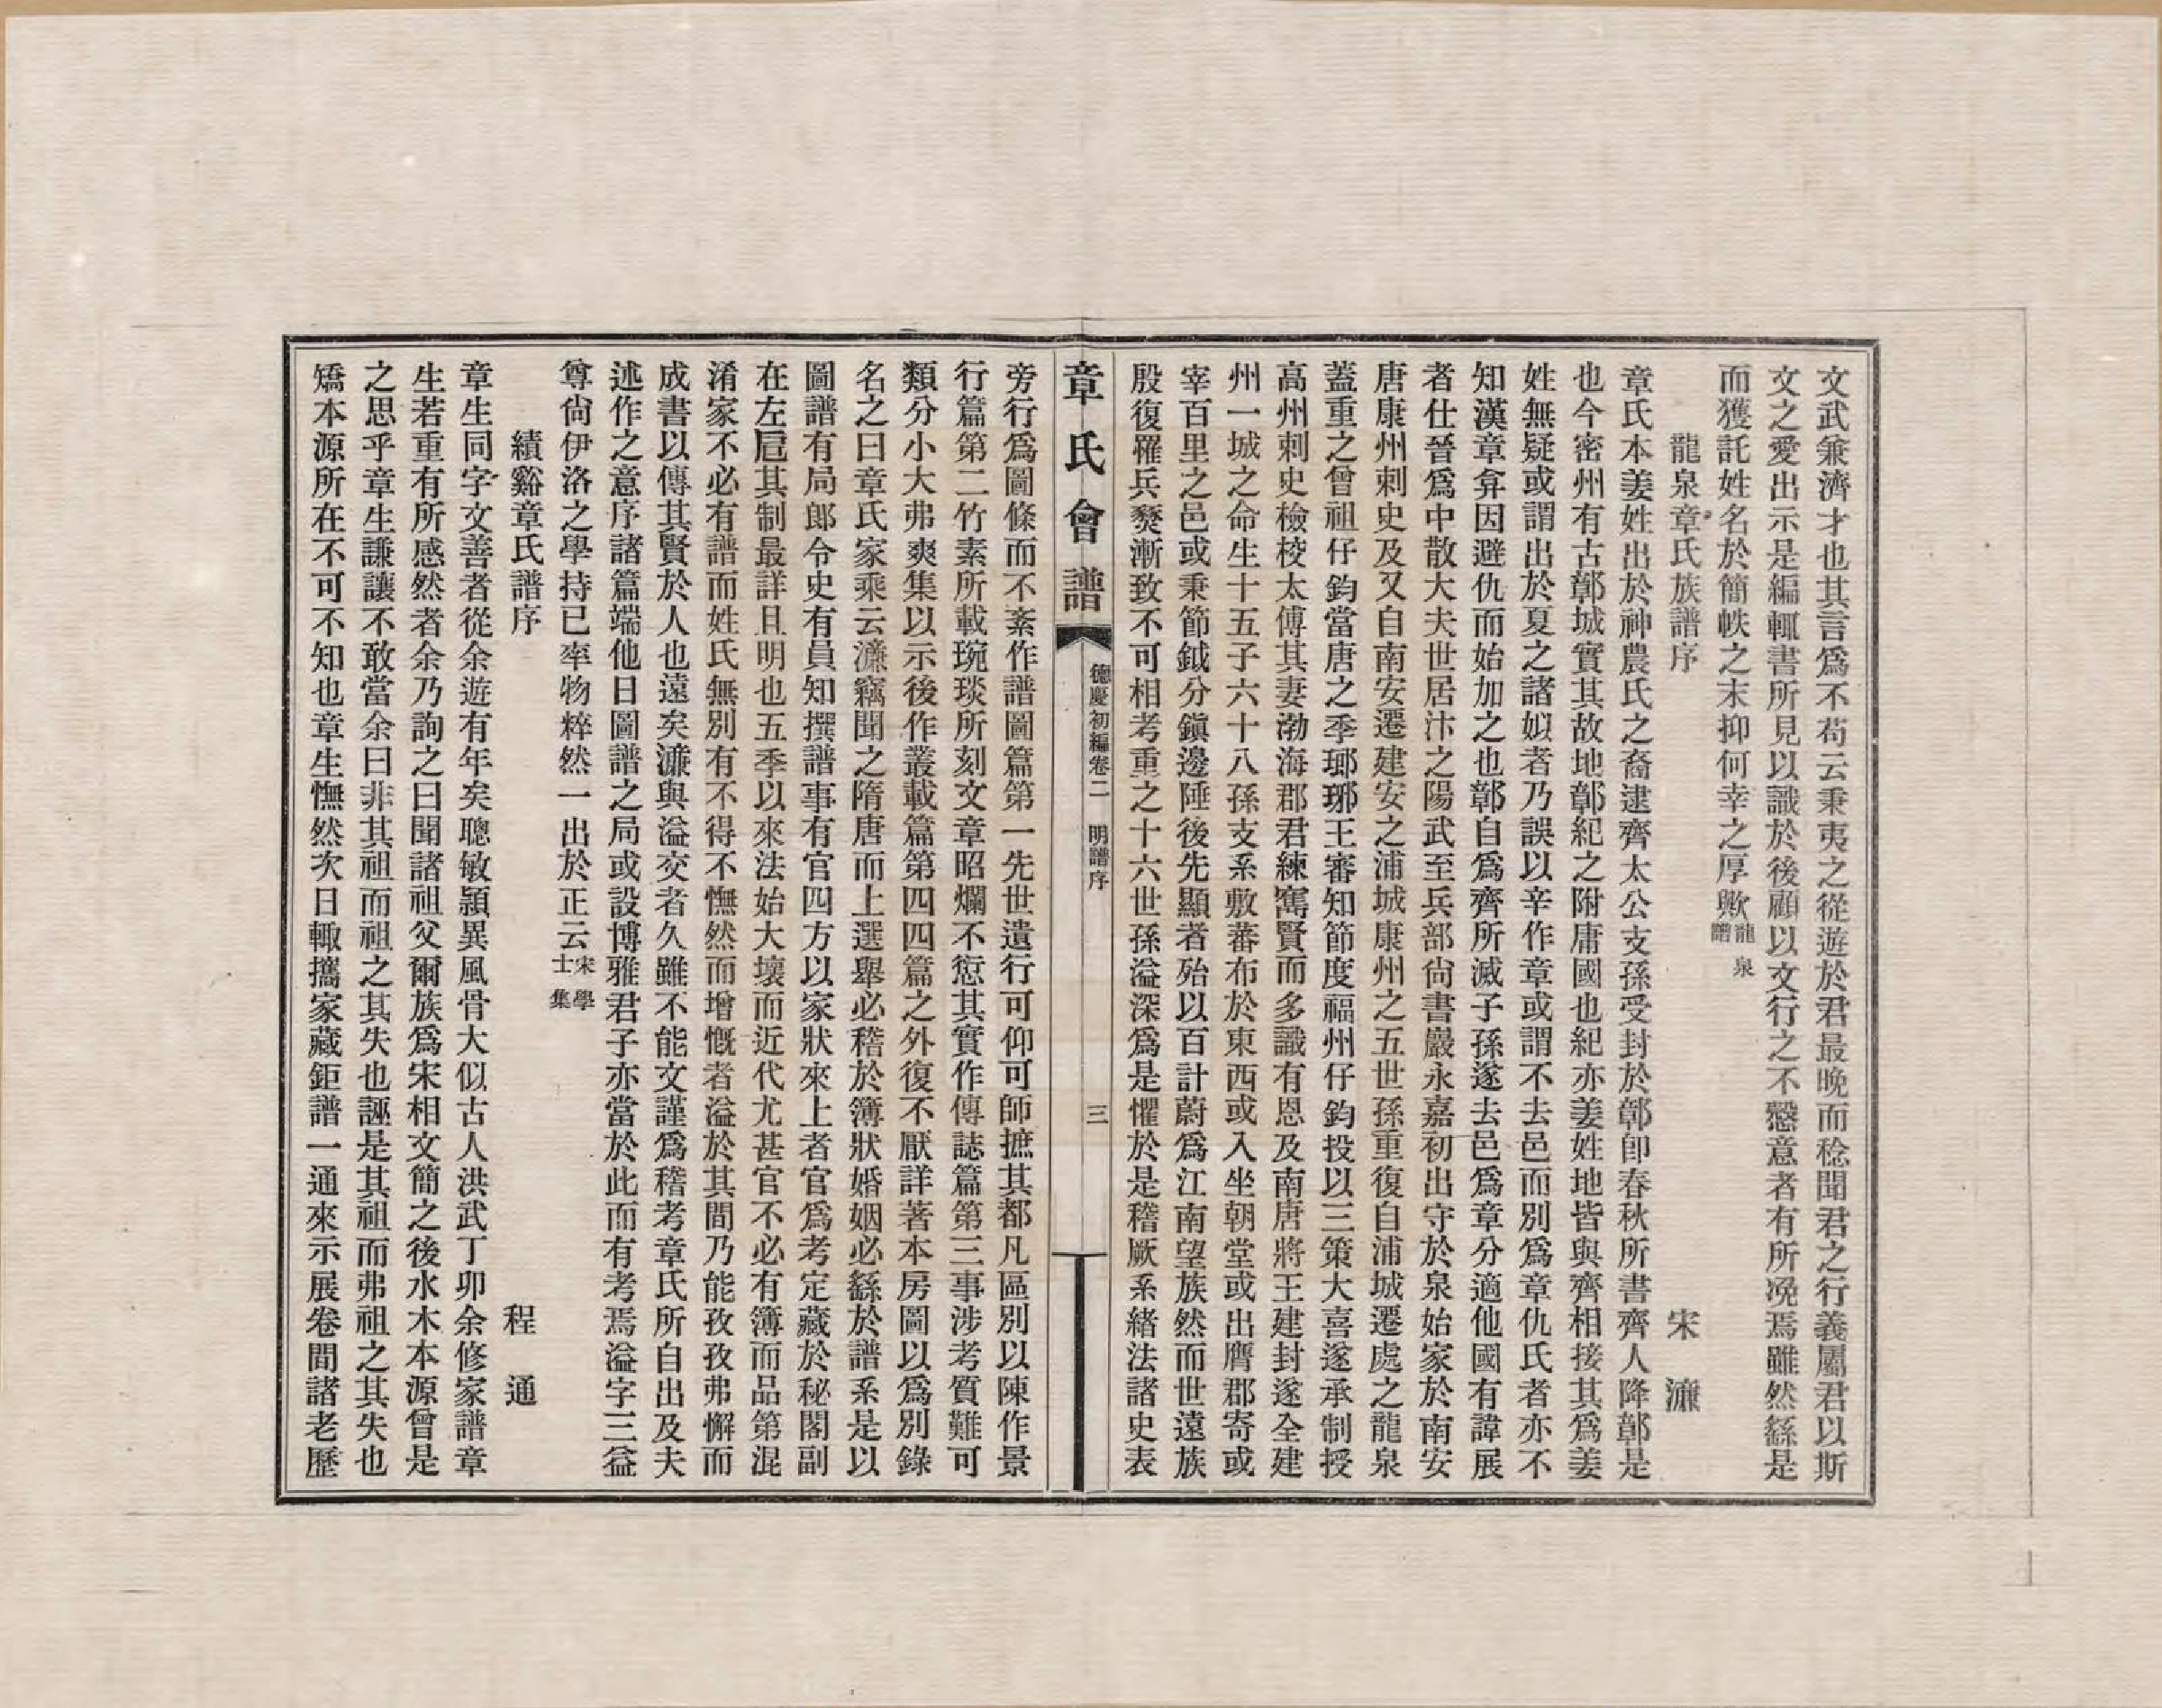 文武兼濟才也其言爲不苟云秉夷之從遊於君最晚而稔聞君之行義屬君以斯
文之愛出示是編輒書所見以識於後顧以文行之不懸意者有所凂焉雖然繇是
而獲託姓名於簡帙之末抑何幸之厚歟龍泉譜
龍泉章氏族譜序　宋濂
章氏本姜姓出於神農氏之裔逮齊太公支孫受封於鄣卽春秋所書齊人降鄣是
也今密州有古鄣城實其故地鄣紀之附庸國也紀亦姜姓地皆與齊相接其爲姜
姓無疑或謂出於夏之諸姒者乃誤以辛作章或謂不去邑而別爲章仇氏者亦不
知漢章弇因避仇而始加之也鄣自爲齊所滅子孫遂去邑爲章分適他國有諱展
者仕晉爲中散大夫世居汴之陽武至兵部尙書嚴永嘉初出守於泉始家於南安
唐康州刺史及又自南安遷建安之浦城康州之五世孫重復自浦城遷處之龍泉
蓋重之曾祖仔鈞當唐之季瑯琊王審知節度福州仔鈞投以三策大喜遂承制授
高州刺史檢校太傅其妻渤海郡君練寯賢而多識有恩及南唐將王建封遂全建
州一城之命生十五子六十八孫支系敷蕃布於東西或入坐朝堂或出膺郡寄或
宰百里之邑或秉節鉞分鎭邊陲後先顯者殆以百計蔚爲江南望族然而世遠族
殷復罹兵燹漸致不可相考重之十六世孫溢深爲是懼於是稽厥系緒法諸史表
章氏會譜　德慶初編卷二　明譜序　三
旁行爲圖條而不紊作譜圖篇第一先世遺行可仰可師摭其都凡區別以陳作景
行篇第二竹素所載琬琰所刻文章昭爛不愆其實作傳誌篇第三事涉考質難可
類分小大弗爽集以示後作叢載篇第四四篇之外復不厭詳著本房圖以爲別錄
名之曰章氏家乘云濂竊聞之隋唐而上選舉必稽於簿狀婚姻必繇於譜系是以
圖譜有局郎令史有員知撰譜事有官四方以家狀來上者官爲考定藏於秘閣副
在左戶其制最詳且明也五季以來法始大壞而近代尤甚官不必有簿而品第混
淆家不必有譜而姓氏無別有不得不憮然而增慨者溢於其間乃能孜孜弗懈而
成書以傳其賢於人也遠矣濂與溢交者久雖不能文謹爲稽考章氏所自出及夫
述作之意序諸篇端他日圖譜之局或設博雅君子亦當於此而有考焉溢字三益
尊尙伊洛之學持已率物粹然一出於正云宋學士集
績谿章氏譜序　程通
章生同字文善者從余遊有年矣聰敏穎異風骨大似古人洪武丁卯余修家譜章
生若重有所感然者余乃詢之曰聞諸祖父爾族爲宋相文簡之後水木本源曾是
之思乎章生謙讓不敢當余曰非其祖而祖之其失也誣是其祖而弗祖之其失也
矯本源所在不可不知也章生憮然次日輒攜家藏鉅譜一通來示展卷間諸老歷